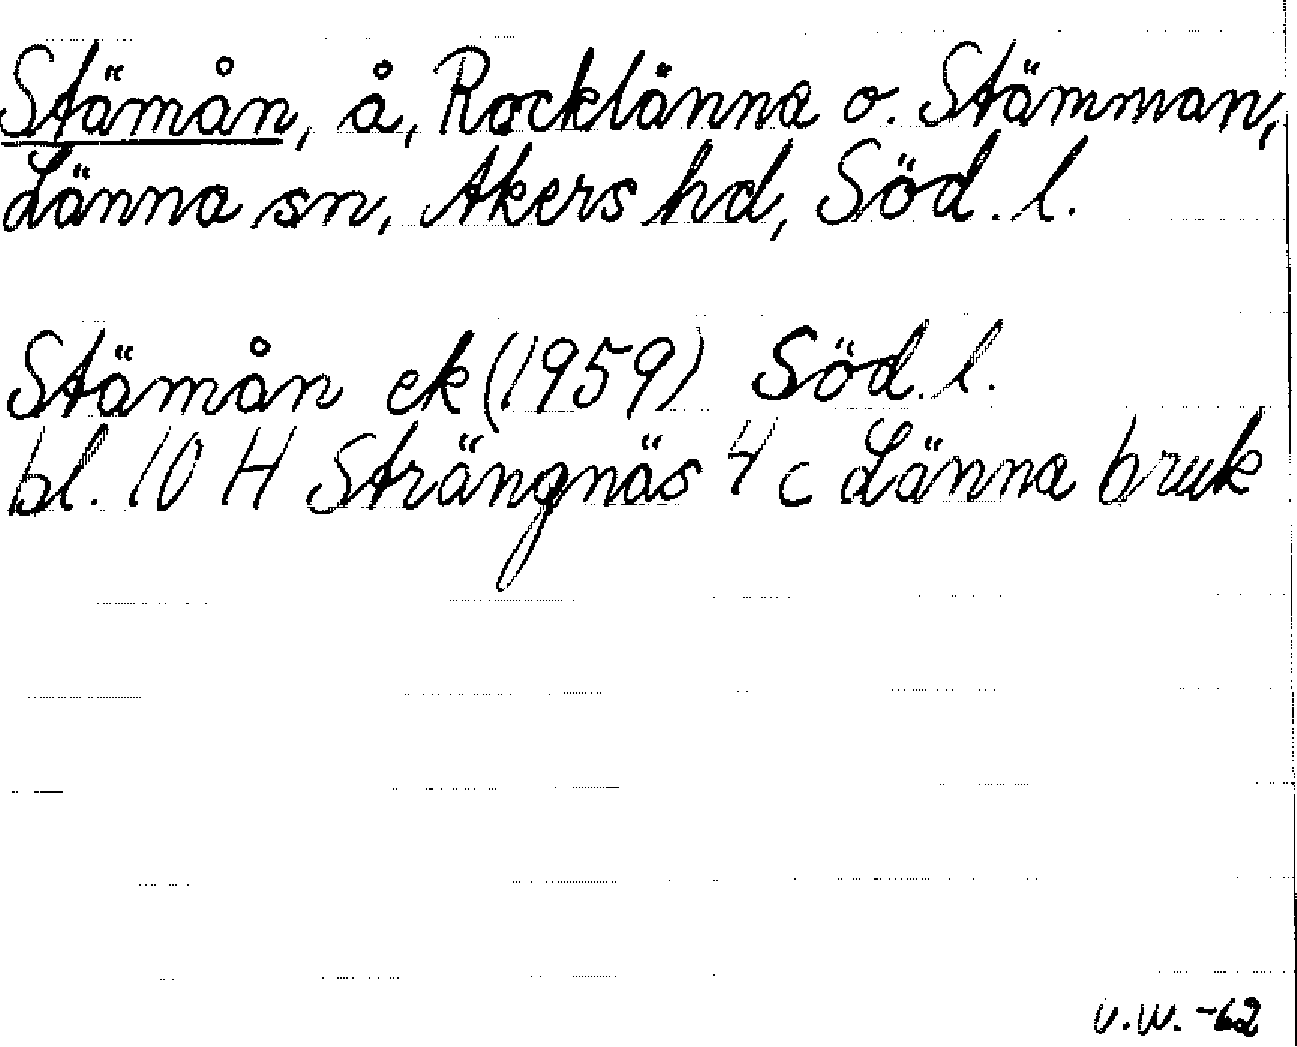 Stämån, å, Rocklänna o. Stämman,
Länna sn, Åkers hd, Söd. l.
Stämån ek (1959) Söd. l.
bl. 10 H Strängnäs 4 c Länna bruk
v.w. -62